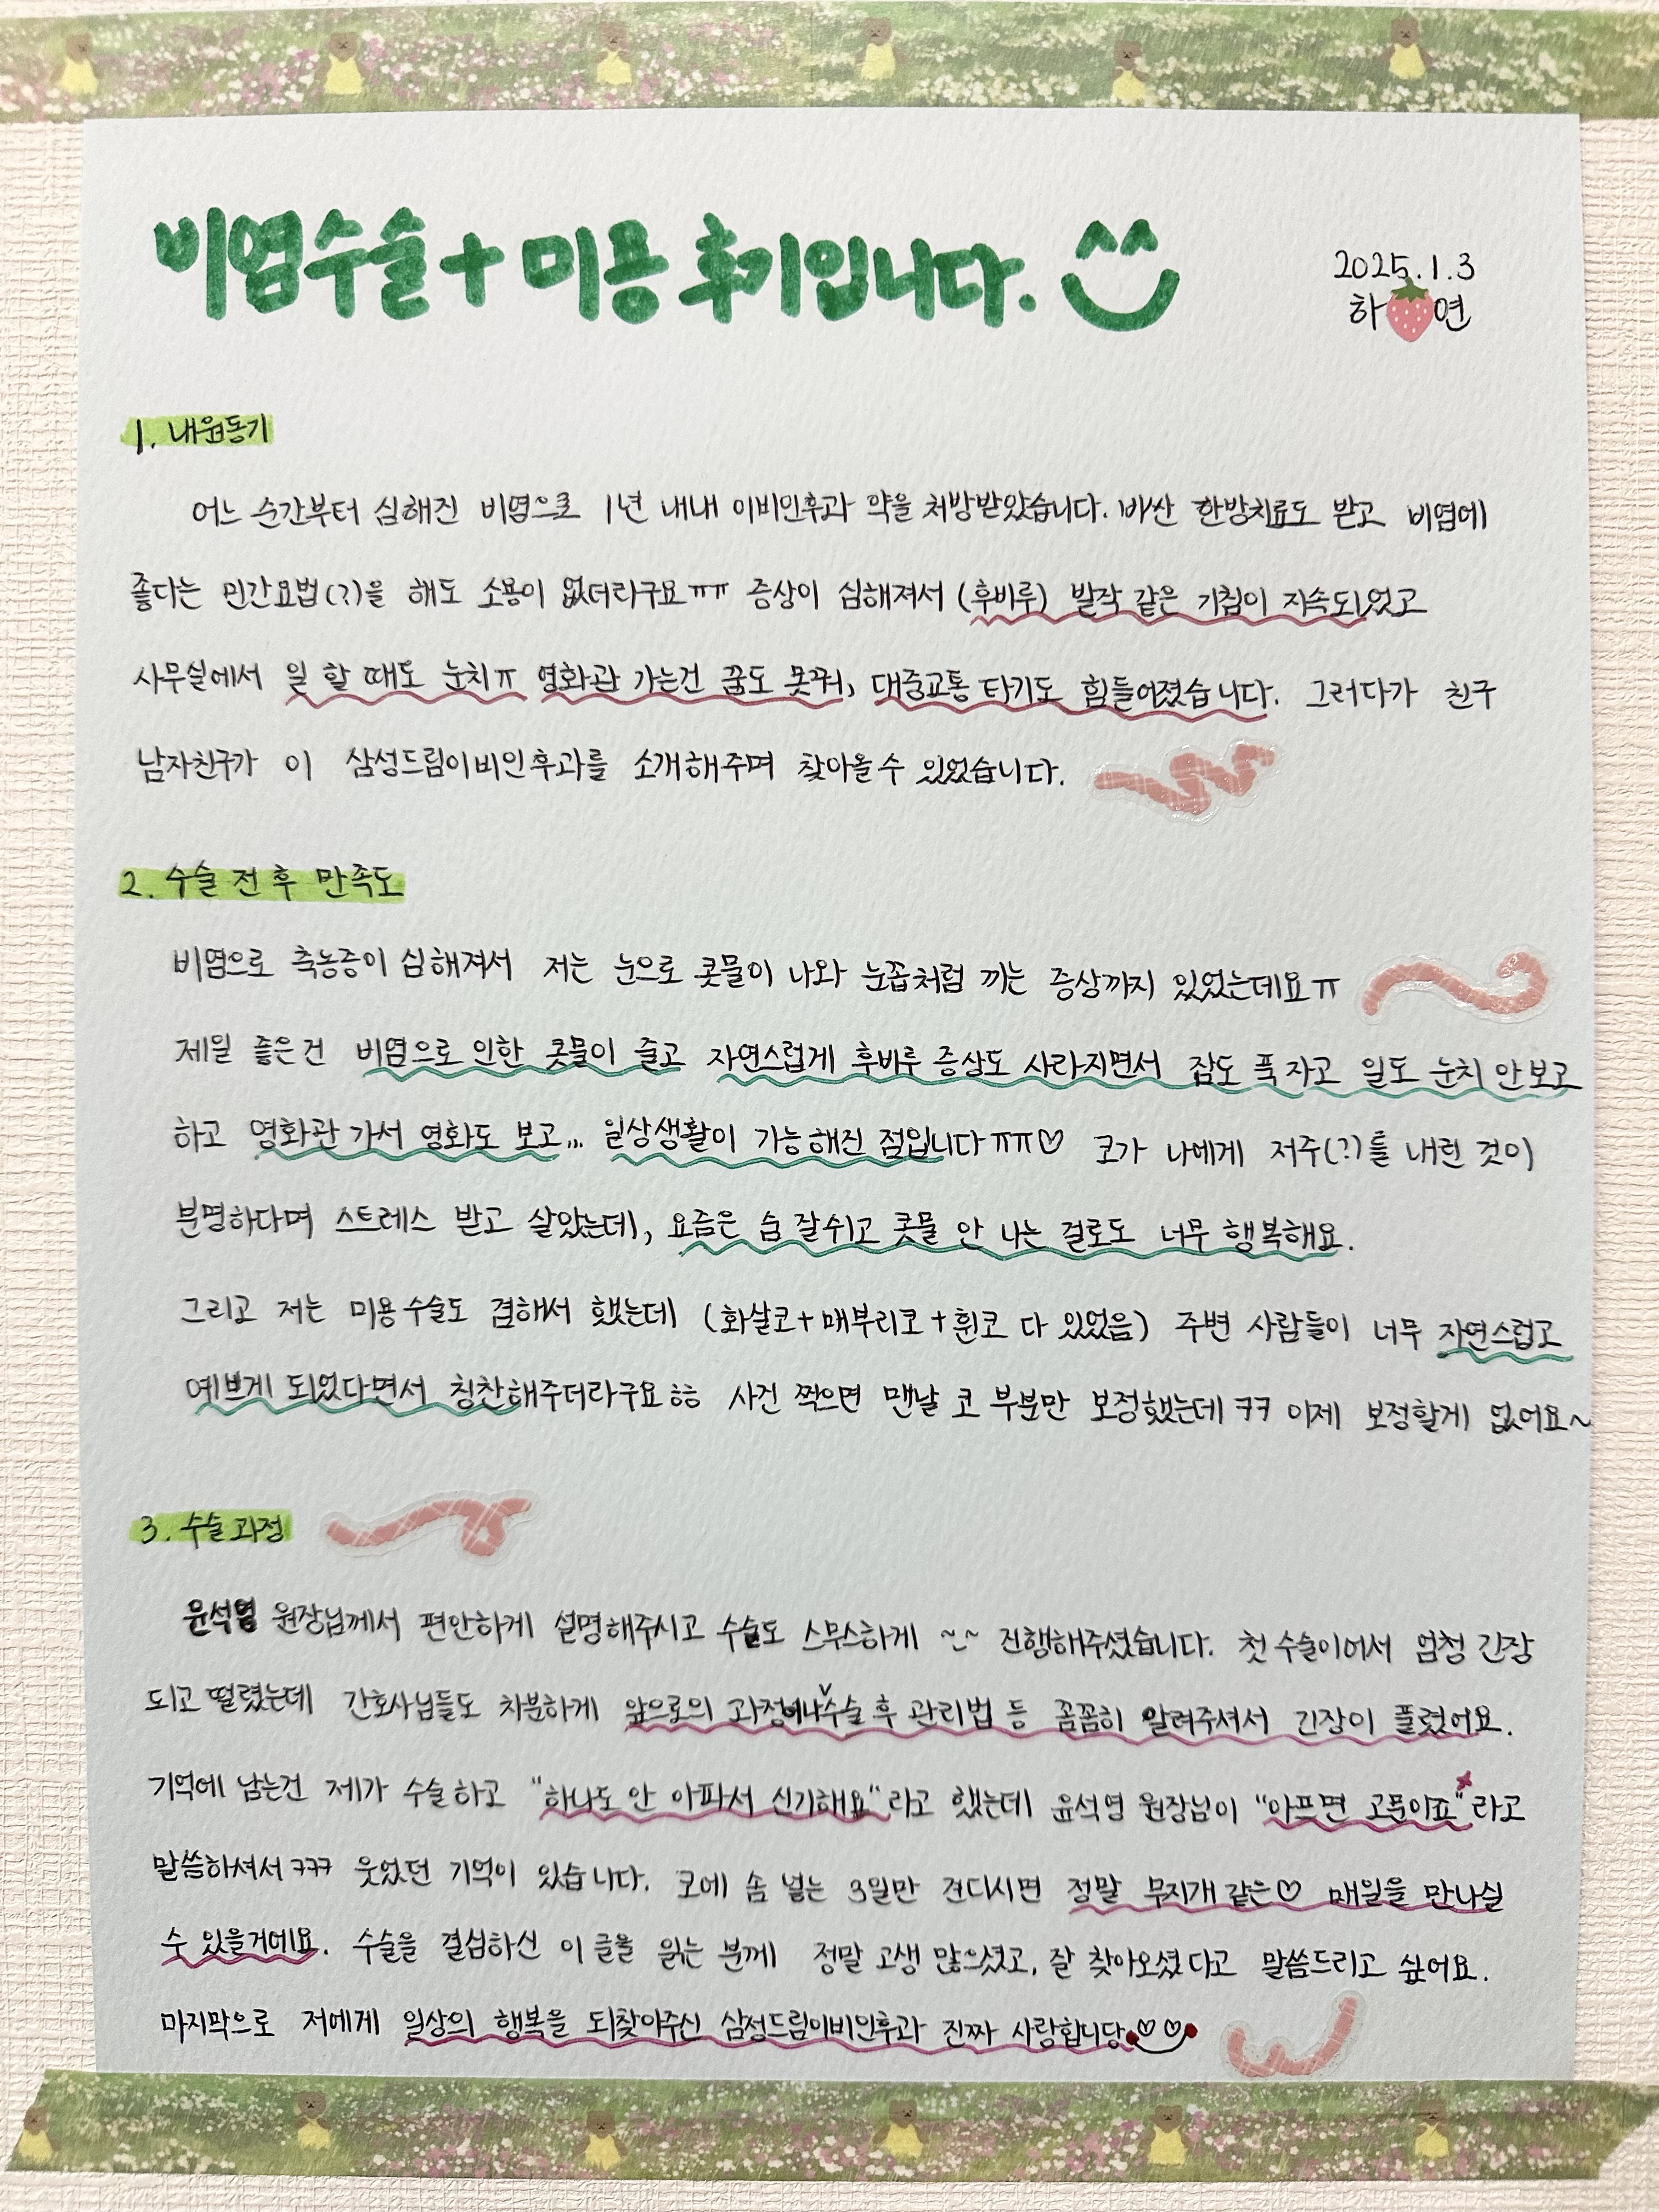 비염수술 + 미용 후기입니다.
2025.1.3
하 연
1. 내원동기
어느 순간부터 심해진 비염으로 1년 내내 이비인후과 약을 처방받았습니다. 비싼 한방치료도 받고 비염에
좋다는 민간요법(?)을 해도 소용이 없더라구요ㅠㅠ 증상이 심해져서 (후비루) 발작 같은 기침이 지속되었고
사무실에서 일 할 때도 눈치ㅠ 영화관 가는건 꿈도 못꿔, 대중교통 타기도 힘들어졌습니다. 그러다가 친구
남자친구가 이 삼성드림이비인후과를 소개해주며 찾아올수 있었습니다.
2. 수술 전 후 만족도
비염으로 축농증이 심해져서 저는 눈으로 콧물이 나와 눈꼽처럼 끼는 증상까지 있었는데요ㅠ
제일 좋은건 비염으로 인한 콧물이 줄고 자연스럽게 후비루 증상도 사라지면서 잠도 푹 자고 일도 눈치 안보고
하고 영화관 가서 영화도 보고... 일상생활이 가능해진 점입니다ㅠㅠ♡ 코가 나에게 저주(?)를 내린 것이
분명하다며 스트레스 받고 살았는데, 요즘은 숨 잘쉬고 콧물 안 나는 걸로도 너무 행복해요.
그리고 저는 미용수술도 겸해서 했는데 (화살코+매부리코+휜코 다 있었음) 주변 사람들이 너무 자연스럽고
예쁘게 되었다면서 칭찬해주더라구요ㅎㅎ 사진 찍으면 맨날 코 부분만 보정했는데 ㅋㅋ 이제 보정할게 없어요~
3. 수술과정
윤석영 원장님께서 편안하게 설명해주시고 수술도 스무스하게 ~~ 진행해주셨습니다. 첫 수술이어서 엄청 긴장
되고 떨렸는데 간호사님들도 차분하게 앞으로의 과정이나 수술 후 관리법 등 꼼꼼히 알려주셔서 긴장이 풀렸어요.
기억에 남는건 제가 수술하고 "하나도 안 아파서 신기해요"라고 했는데 윤석영 원장님이 "아프면 고문이죠"라고
말씀하셔서 ㅋㅋㅋ 웃었던 기억이 있습니다. 코에 솜 넣는 3일만 견디시면 정말 무지개 같은♡ 매일을 만나실
수 있을거에요. 수술을 결심하신 이 글을 읽는 분께 정말 고생 많으셨고, 잘 찾아오셨다고 말씀드리고 싶어요.
마지막으로 저에게 일상의 행복을 되찾아주신 삼성드림이비인후과 진짜 사랑합니당♡♡